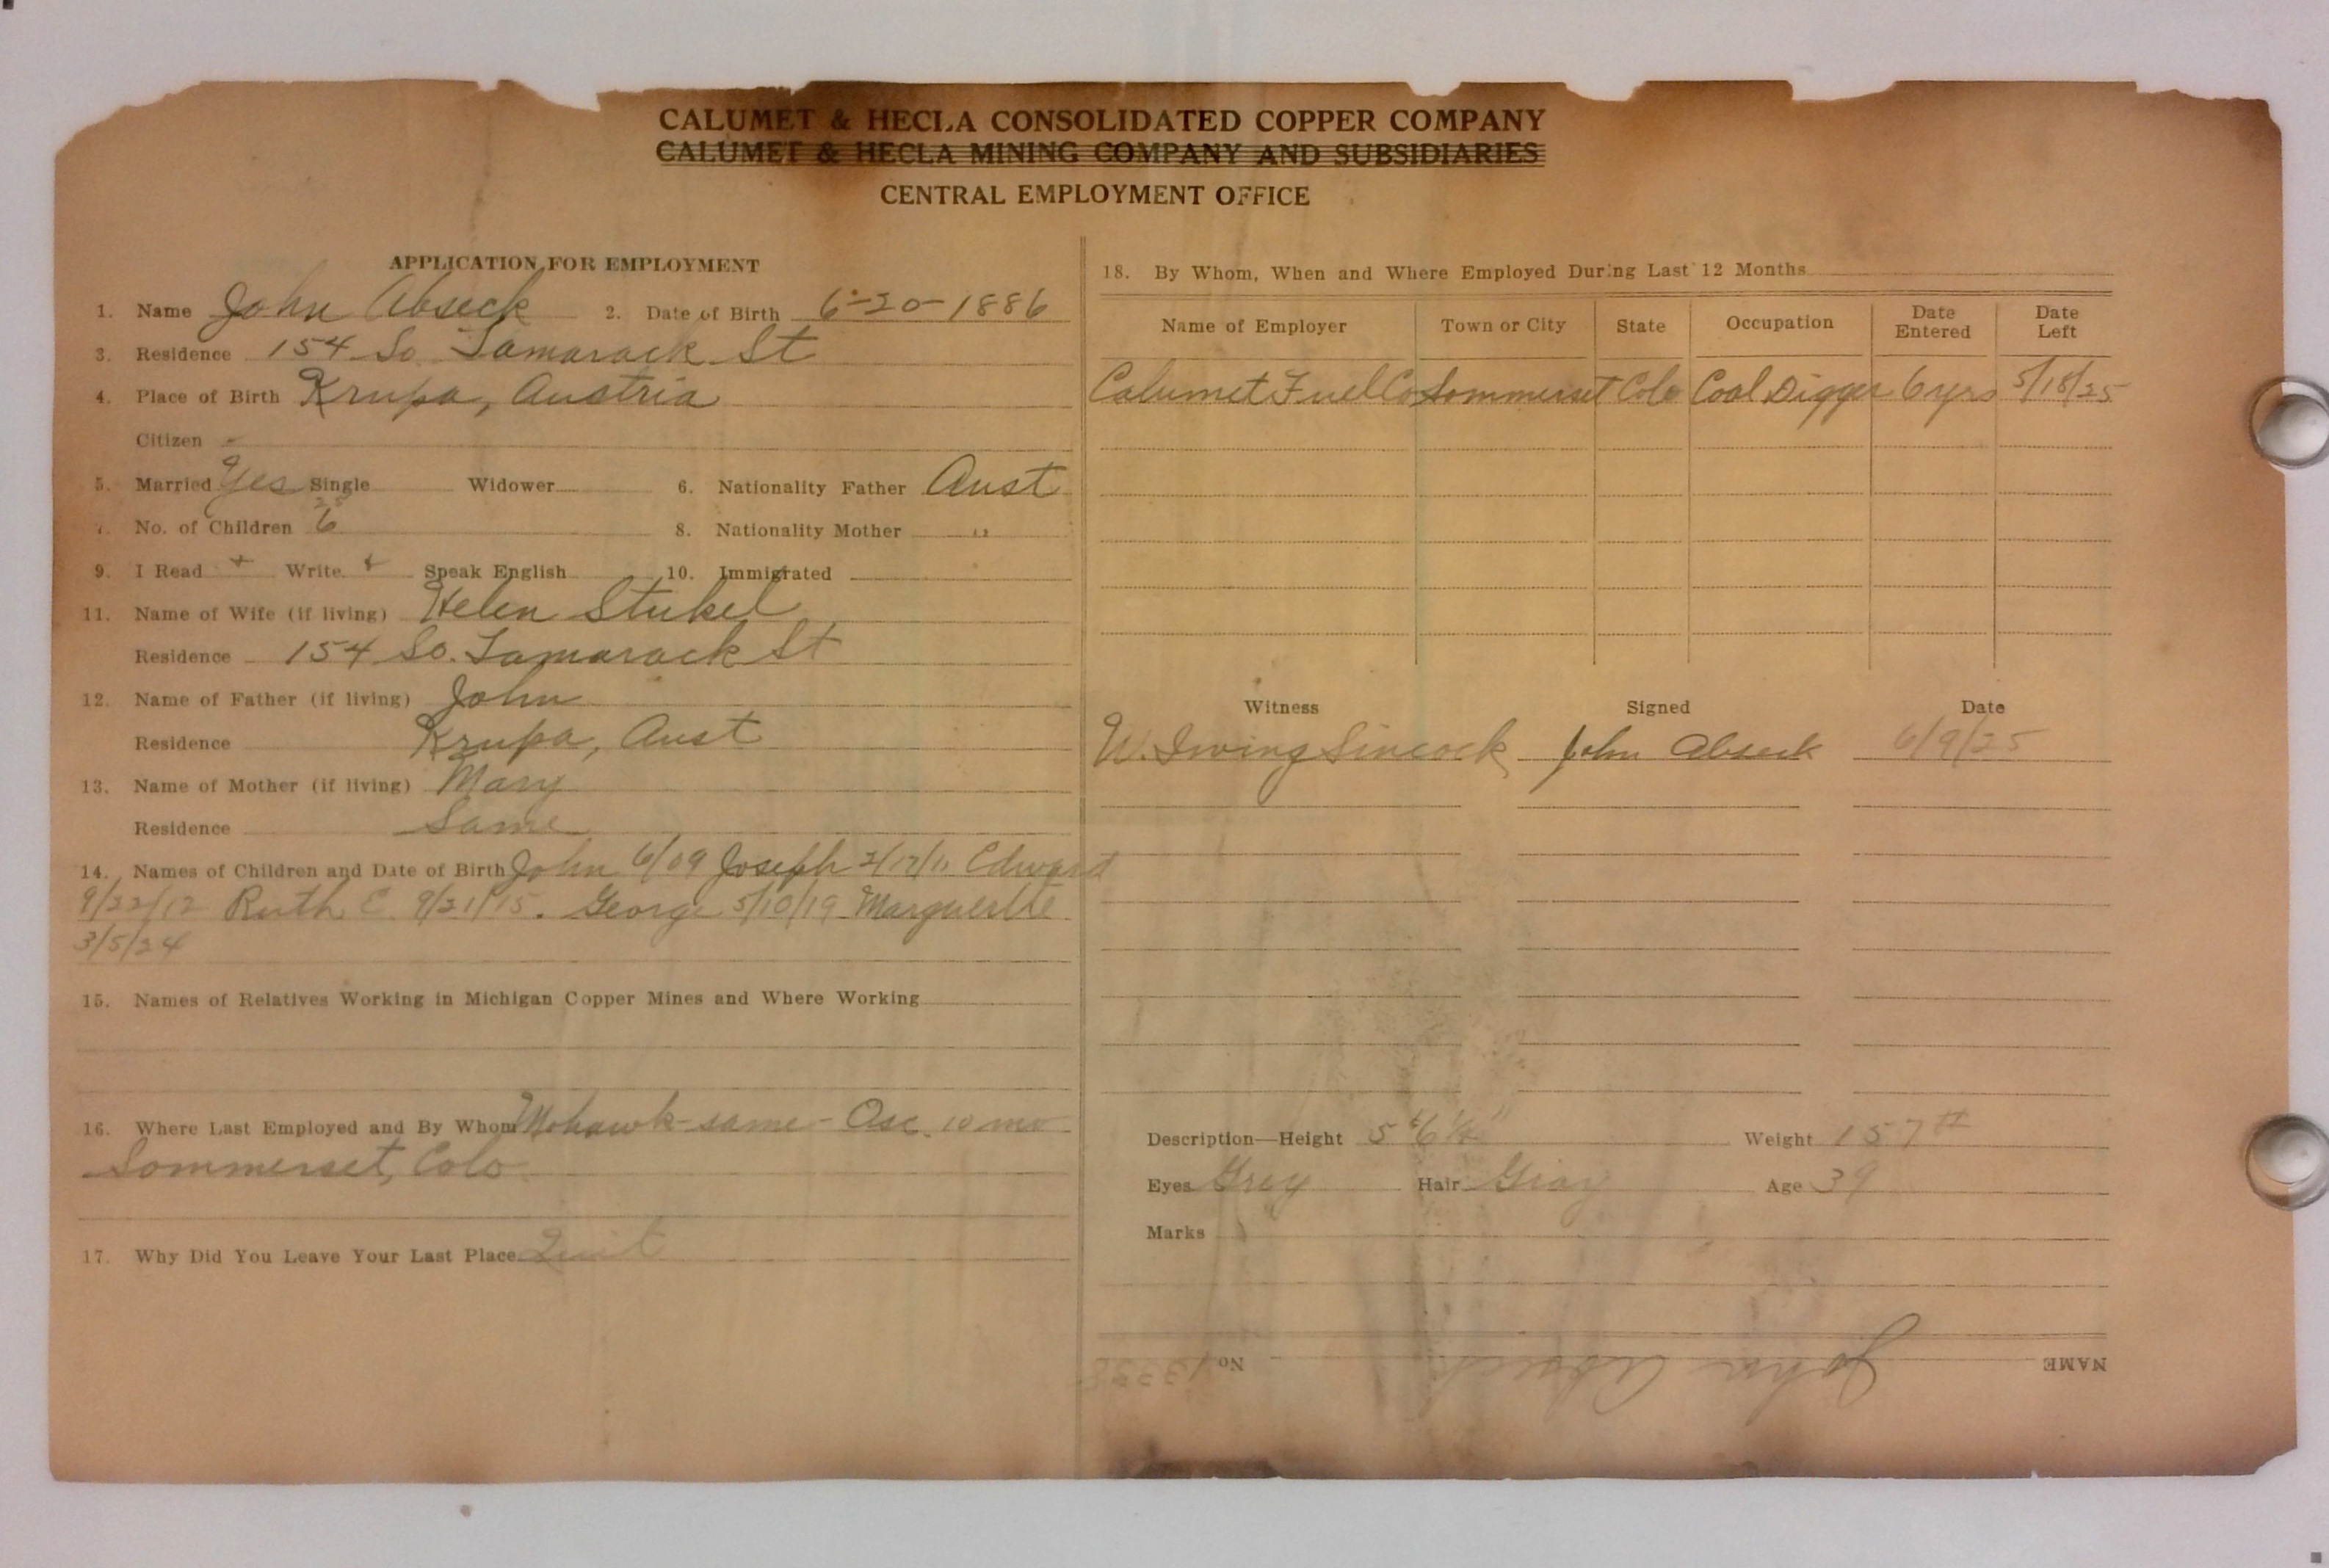 CALUMET & HECLA CONSOLIDATED COPPER COMPANY
CALUMET & HECLA MINING COMPANY AND SUBSIDIARIES
CENTRAL EMPLOYMENT OFFICE
APPLICATION FOR EMPLOYMENT
1. Name John Abseck 2. Date of Birth 6-20-1886
3. Residence 154 So. Tamarack St
4. Place of Birth Krupa, Austria
Citizen -
5. Married Yes Single Widower 6. Nationality Father Aust
7. No. of Children 6 8. Nationality Mother "
9. I Read + Write + Speak English 10. Immigrated
11. Name of Wife (if living) Helen Stukel
Residence 154 So. Tamarack St
12. Name of Father (if living) John
Residence Krupa, Aust
13. Name of Mother (if living) Mary
Residence Same
14. Names of Children and Date of Birth John 6/09 Joseph 2/17/11 Edward
9/22/12 Ruth E. 9/21/15. George 5/10/19 Marguerite
3/5/24
15. Names of Relatives Working in Michigan Copper Mines and Where Working
16. Where Last Employed and By Whom Mohawk-same-Osc. 10 mo
Sommerset, Colo
17. Why Did You Leave Your Last Place Quit
18. By Whom, When and Where Employed During Last 12 Months
Name of Employer Town or City State Occupation Date Entered Date Left
Calumet Fuel Co Sommerset Colo Coal Digger 6 yrs 5/18/25
Witness Signed Date
W. Irving Sincock John Abseck 6/9/25
Description—Height 5' 6 1/2" Weight 157#
Eyes Grey Hair Gray Age 39
Marks
NAME John Abseck No.